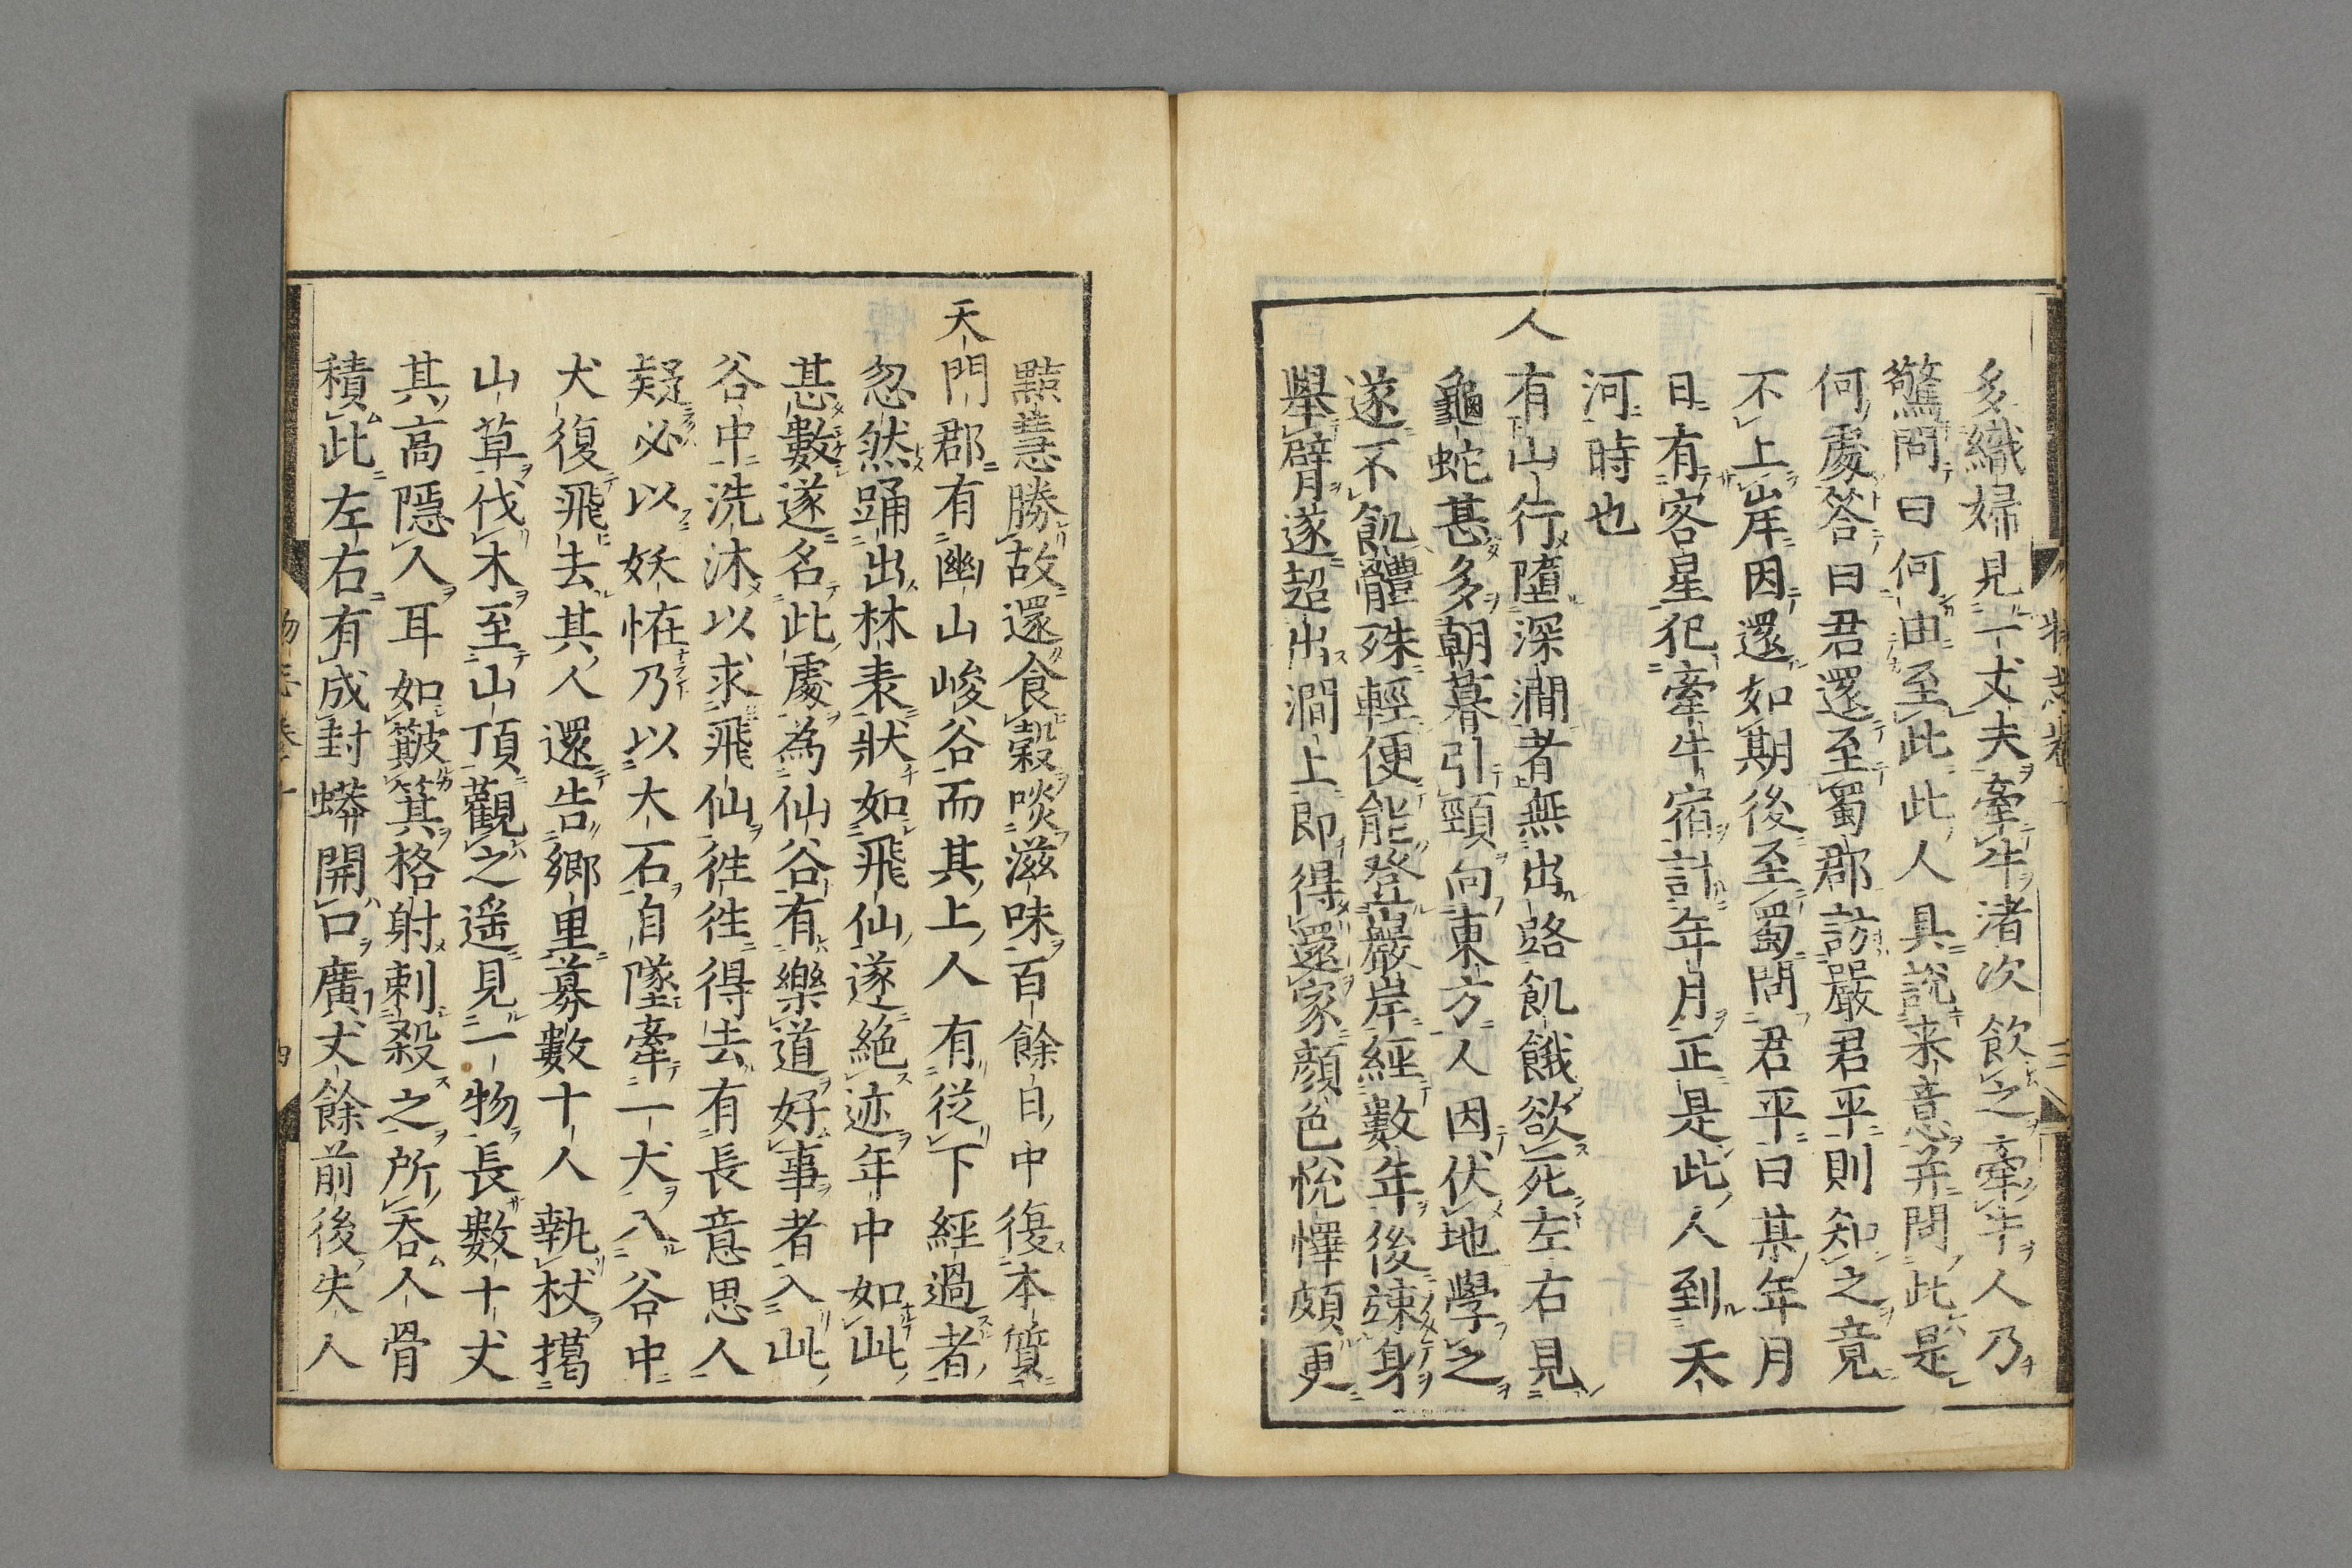 多織婦見一丈夫牽牛渚次飲之牽牛人乃
驚問曰何由至此此人具說来意并問此是
何處答曰君還至蜀郡訪嚴君平則知之竟
不上岸因還如期後至蜀問君平曰某年月
日有客星犯牽牛宿計年月正是此人到天
河時也
人有山行墮深澗者無出路飢餓欲死左右見
龜蛇甚多朝暮引頸向東方人因伏地學之
遂不飢體殊輕便能登巖岸經數年後竦身
舉臂遂超出澗上即得還家顏色悅懌頗更
黠慧勝故還食穀啖滋味百餘日中復本質
天門郡有幽山峻谷而其上人有從下經過者
忽然踊出林表狀如飛仙遂絕迹年中如此
甚數遂名此處為仙谷有樂道好事者入此
谷中洗沐以求飛仙徃徃得去有長意思人
疑必以妖怪乃以大石自墜牽一犬入谷中
犬復飛去其人還告鄉里募數十人執杖擖
山草伐木至山頂觀之遥見一物長數十丈
其高隱人耳如簸箕格射刺殺之所吞人骨
積此左右有成封蟒開口廣丈餘前後失人